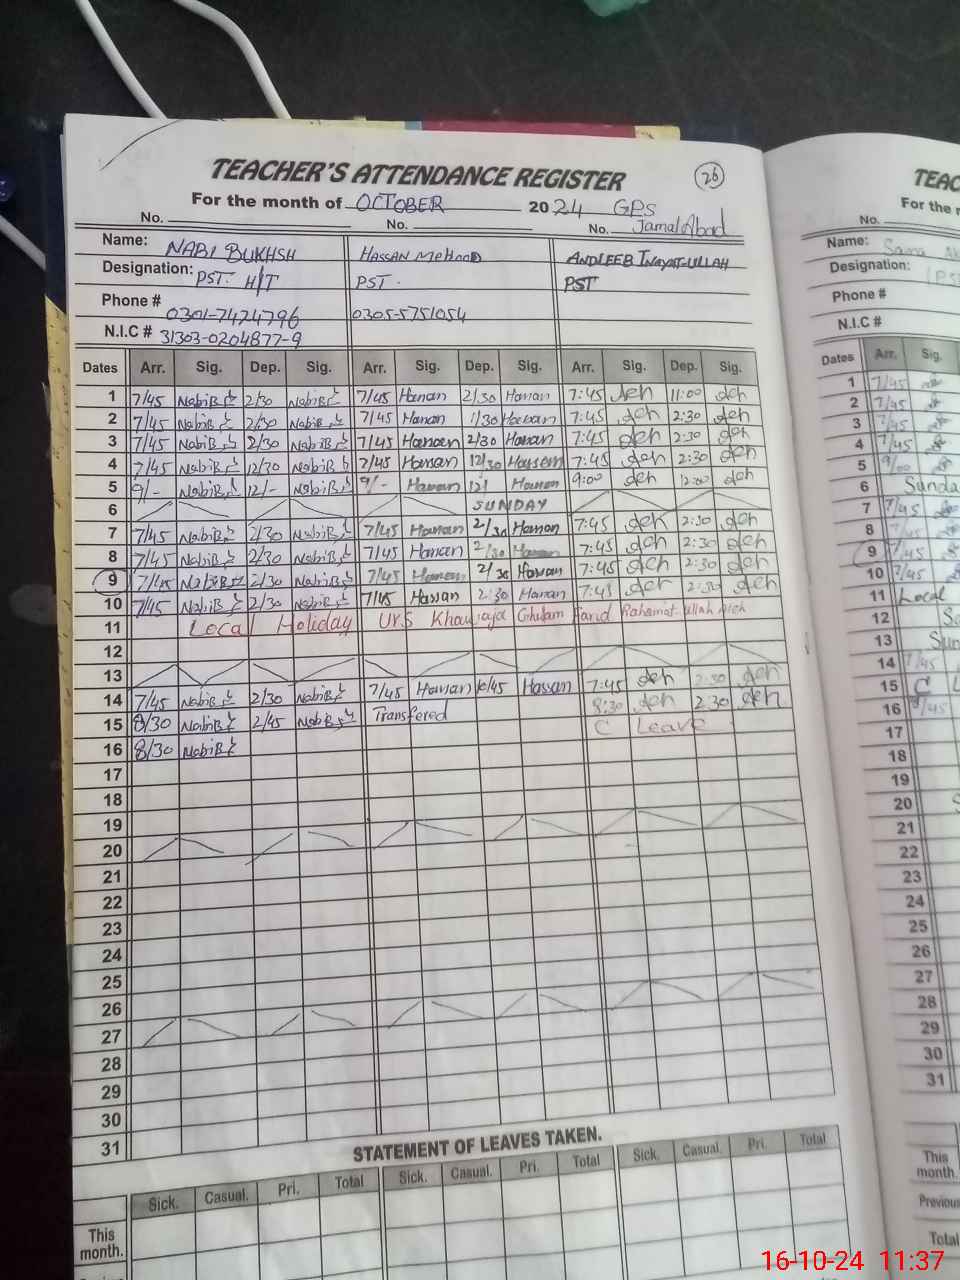 TEACHER'S ATTENDANCE REGISTER 26
For the month of OCTOBER 2024 GPS
No. No. No. Jamal Abad
Name: NABI BUKHSH HASSAN MEHMOOD ANDLEEB INAYAT-ULLAH
Designation: PST. H/T PST. PST
Phone # 0301-7424796 0305-5751054
N.I.C # 31303-0204877-9
Dates Arr. Sig. Dep. Sig. Arr. Sig. Dep. Sig. Arr. Sig. Dep. Sig.
1 7/45 NabiB 2/30 NabiB 7/45 Hassan 2/30 Hassan 7:45 11:00
2 7/45 NabiB 2/30 NabiB 7/45 Hassan 1/30 Hassan 7:45 2:30
3 7/45 NabiB 2/30 NabiB 7/45 Hassan 2/30 Hassan 7:45 2:30
4 7/45 NabiB 12/30 NabiB 7/45 Hassan 12/30 Hassan 7:45 2:30
5 9/- NabiB 12/- NabiB 9/- Hassan 12/ Hassan 9:00 12:00
6 SUNDAY
7 7/45 NabiB 2/30 NabiB 7/45 Hassan 2/30 Hassan 7:45 2:30
8 7/45 NabiB 2/30 NabiB 7/45 Hassan 2/30 Hassan 7:45 2:30
9 7/45 NabiB 2/30 NabiB 7/45 Hassan 2/30 Hassan 7:45 2:30
10 7/45 NabiB 2/30 NabiB 7/45 Hassan 2:30 Hassan 7:45 2:30
11 Local Holiday Urs Khawaja Ghulam Farid Rahamat-ullah
12
13
14 7/45 NabiB 2/30 NabiB 7/45 Hassan 10/45 Hassan 7:45 2:30
15 8/30 NabiB 2/45 NabiB Transfered 8:30 2:30
16 8/30 NabiB C Leave
17
18
19
20
21
22
23
24
25
26
27
28
29
30
31
STATEMENT OF LEAVES TAKEN.
Sick. Casual. Pri. Total Sick. Casual. Pri. Total Sick. Casual. Pri. Total
This month.
TEAC
For the
No.
Name: Sana
Designation: PST
Phone #
N.I.C #
Dates Arr. Sig.
1 7/45
2 7/45
3 7/45
4 7/45
5 9/00
6 Sunda
7 7/45
8
9 7/45
10 7/45
11 Local
12
13 Sun
14 7/45
15 C L
16 8/45
17
18
19
20
21
22
23
24
25
26
27
28
29
30
31
This month.
Previous
Total
16-10-24 11:37